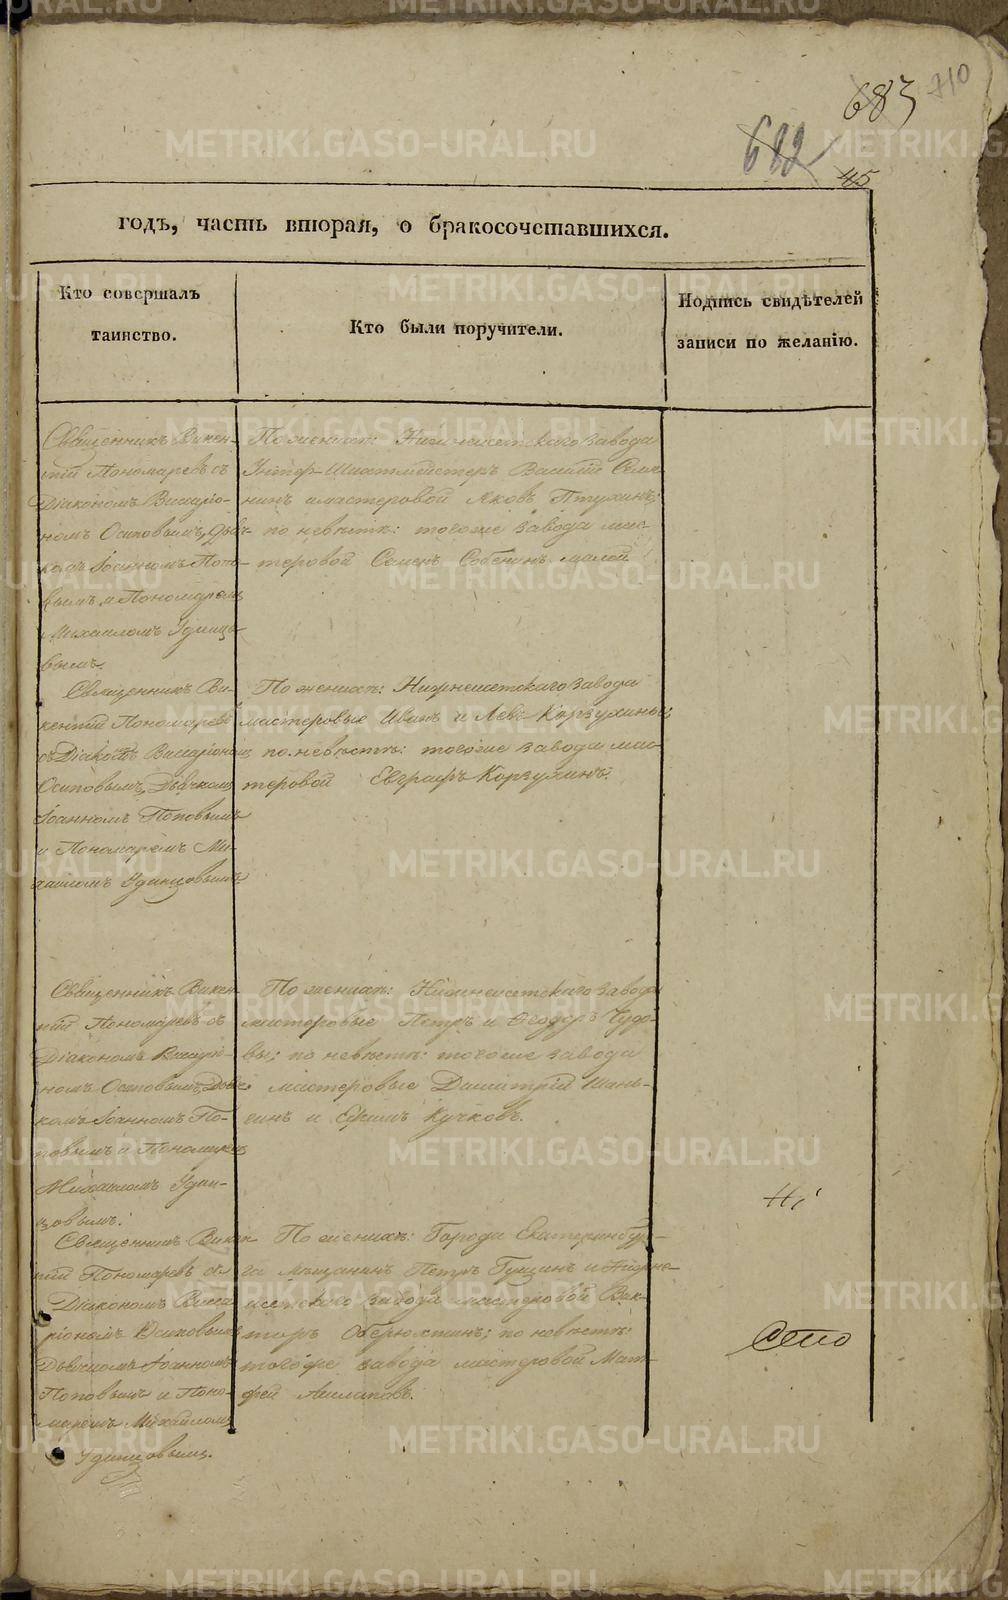 683
710
682
45
годъ, часть вторая, о бракосочетавшихся.
Кто совершалъ
таинство.
Кто были поручители.
Подпись свидѣтелей
записи по желанію.
Священникъ Викен-
тій Пономаревъ съ
Діакономъ Виссаріо-
номъ Осиповымъ, Дьяч-
комъ Іоанномъ Попо-
вымъ и Пономаремъ
Михаиломъ Удинцо-
вымъ.
По женихѣ: Нижнеисетскаго завода
Унтер-Шихтмейстеръ Василій
и мастеровой Яковъ Птухинъ;
по невѣстѣ: тогоже завода мас-
теровой Семенъ Собенинъ малой
Священникъ Ви-
кентій Пономаревъ
съ Діакономъ Виссаріономъ
Осиповымъ, Дьячкомъ
Іоанномъ Поповымъ
и Пономаремъ Ми-
хаиломъ Удинцовымъ.
По женихѣ: Нижнеисетскаго завода
мастеровые Иванъ и Левъ Корзухины;
по невѣстѣ: тогоже завода мас-
теровой Евграфъ Корзухинъ.
Священникъ Викен-
тій Пономаревъ съ
Діакономъ Виссарі-
ономъ Осиповымъ, Дьяч-
комъ Іоанномъ По-
повымъ и Пономаремъ
Михаиломъ Удин-
цовымъ.
По женихѣ: Нижнеисетскаго завода
мастеровые Петръ и Ѳеодоръ Чудо-
вы; по невѣстѣ: тогоже завода
мастеровые Димитрій Шань-
гинъ и Ефимъ Кучковъ.
Священникъ Викен-
тій Пономаревъ съ
Діакономъ Висса-
ріономъ Осиповымъ
Дьячкомъ Іоанномъ
Поповымъ и Поно-
маремъ Михаиломъ
Удинцовымъ.
По женихѣ: Города Екатеринбур-
га мѣщанинъ Петръ Гущинъ и Нижне-
исетскаго завода мастеровой Вик-
торъ Оберюхтинъ; по невѣстѣ:
тогоже завода мастеровой Мат-
фей
METRIKI.GASO-URAL.RU